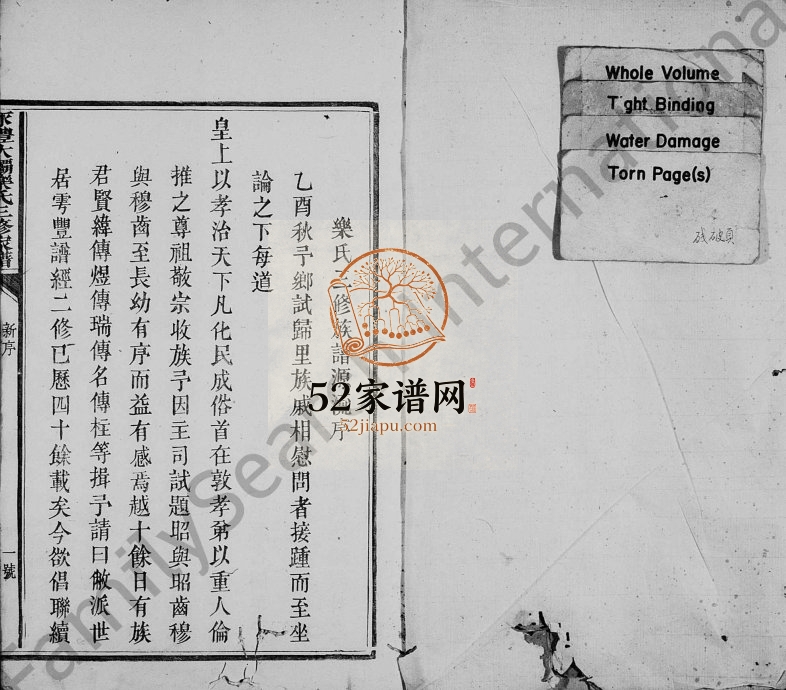 樂氏三修族譜源流序
乙酉秋予鄉試歸里族戚相慰問者接踵而至坐
論之下每道
皇上以孝治天下凡化民成俗首在敦孝弟以重人倫
推之尊祖敬宗收族予因主司試題昭與昭齒穆
與穆齒至長幼有序而益有感焉越十餘日有族
君賢緯傳煜傳瑞傳名傳枉等揖予請曰敝派世
居雩豐譜經二修已歷四十餘載矣今欲倡聯續
樂氏三修家譜
新序
一號
Whole Volume
Tight Binding
Water Damage
Torn Page(s)
残破頁
52家谱网
52jiapu.com
FamilySearch International